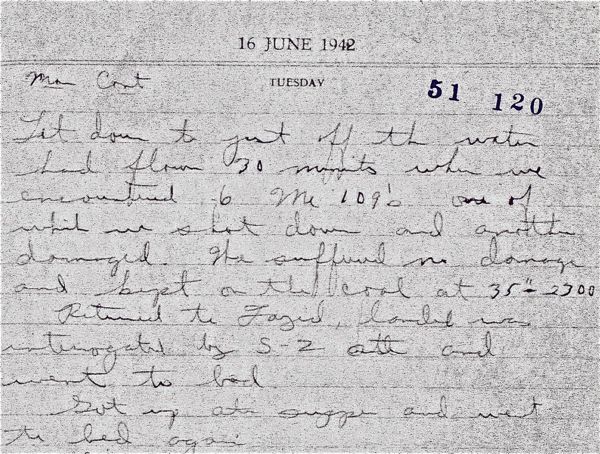 16 JUNE 1942
TUESDAY
51 120
Mon Cont
Let down to just off the water
had flown 30 minutes when we
encountered 6 Me 109's one of
which we shot down and another
damaged. We suffered no damage
and kept on the coal at 35" - 2300
Returned to Fayed, landed was
interrogated by S-2 ate and
went to bed
Got up ate supper and went
to bed again